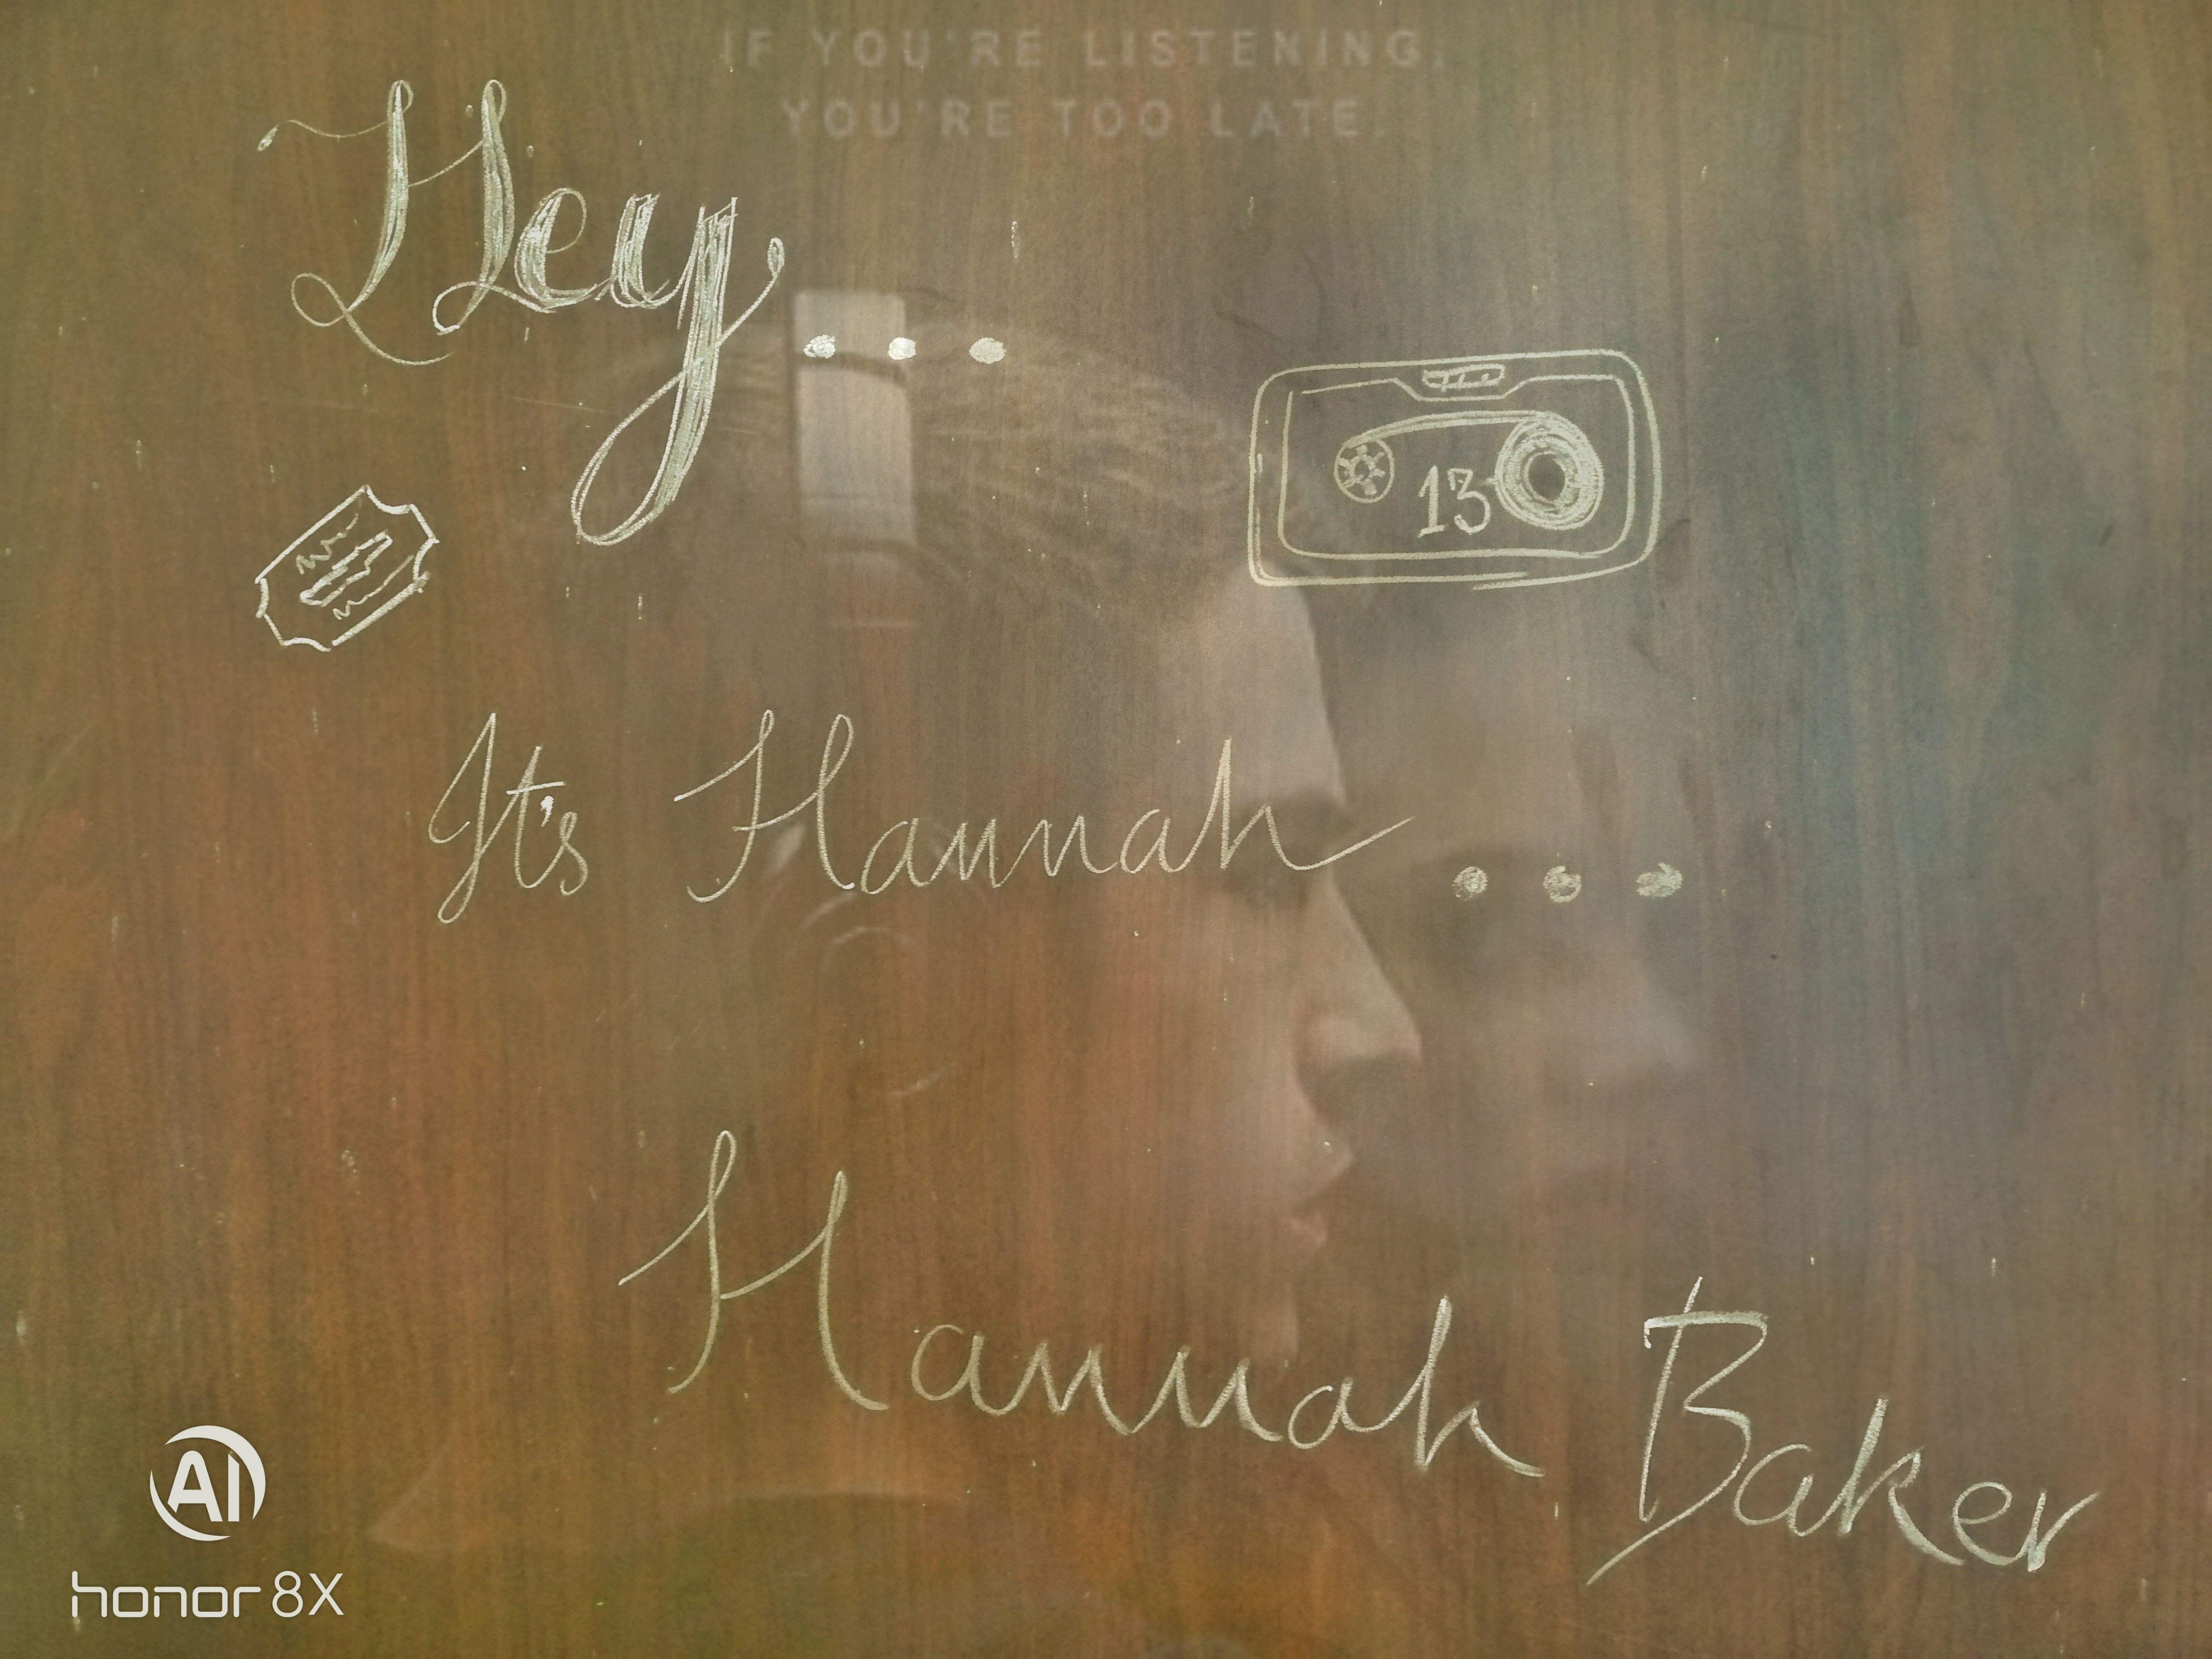 IF YOU'RE LISTENING,
YOU'RE TOO LATE.
Hey...
13
It's Hannah...
Hannah Baker
AI
honor 8X